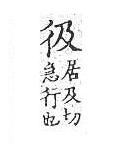 彶
居及切
急行也